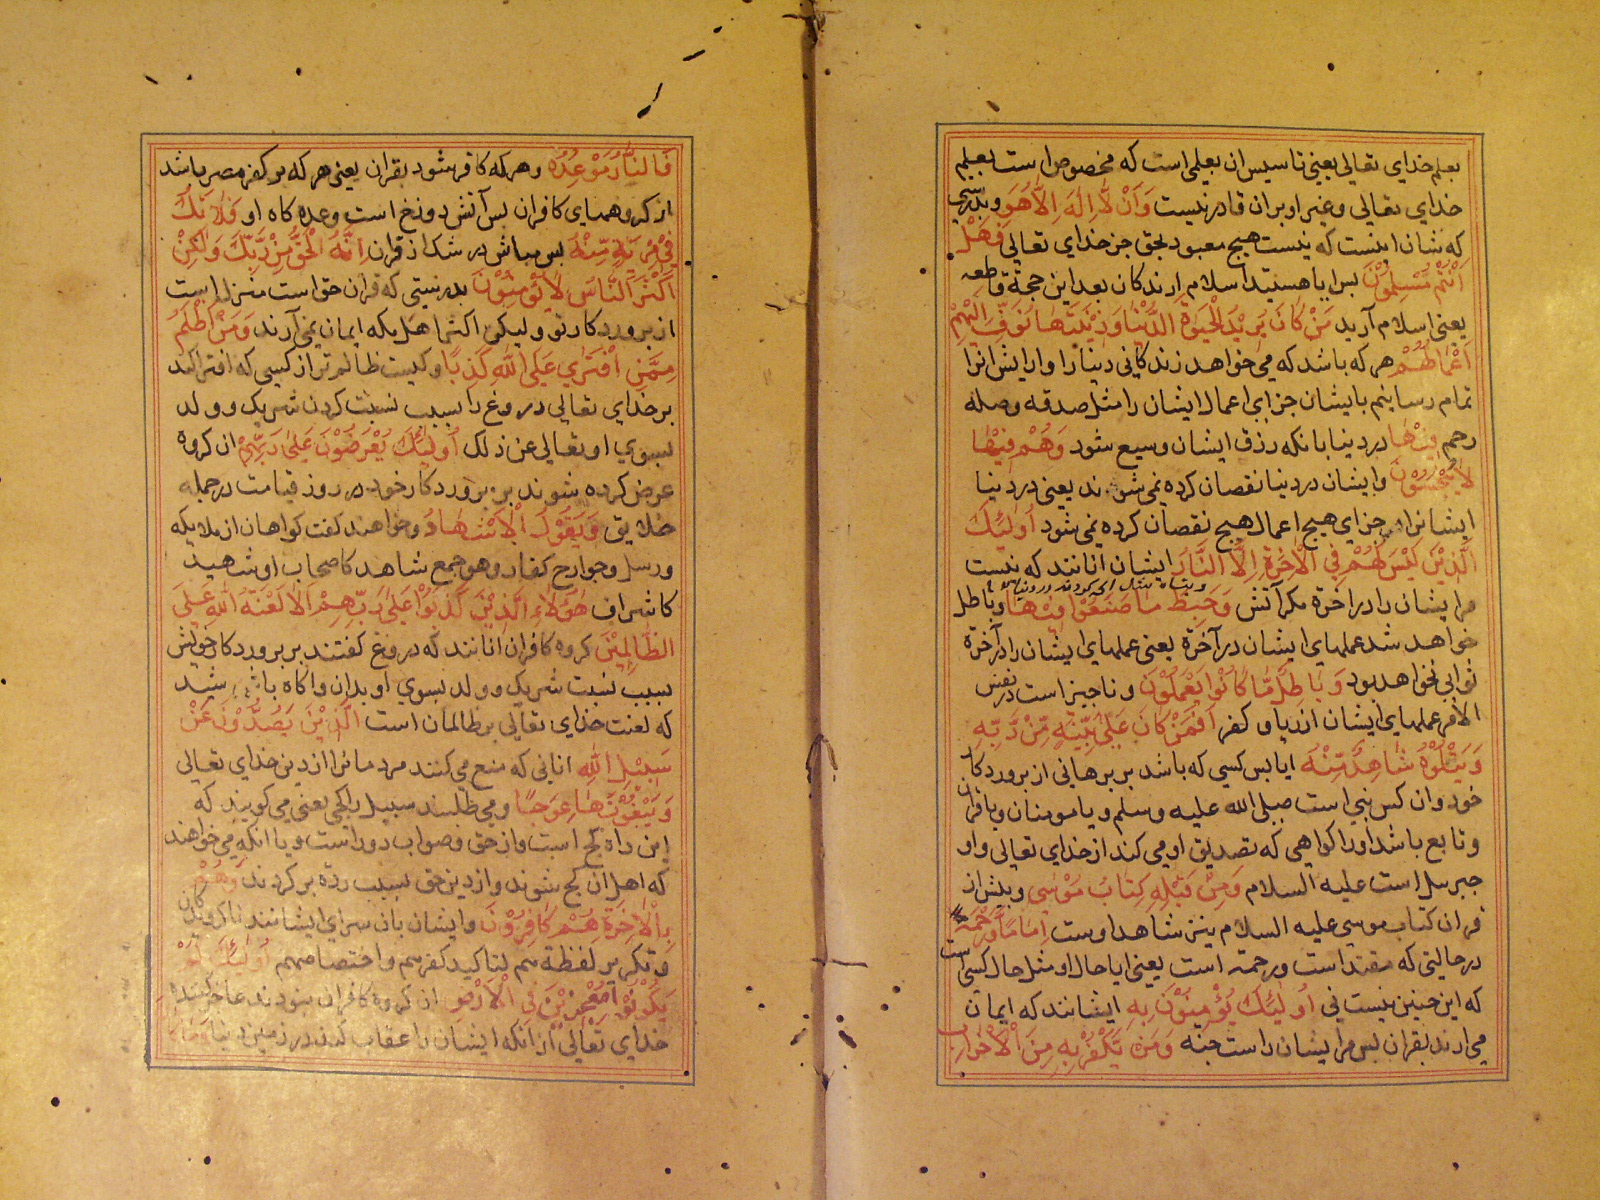 بعلم خدای تعالی یعنی تاسیس ان بعلمی است که مخصوص است بعلم
خدای تعالی وغیر او بران قادر نیست وَاَنْ لَّا اِلٰهَ اِلَّا هُوَ و بدرستی
که شان اینست که نیست هیچ معبود بحق جز خدای تعالی فَهَلْ
اَنْتُمْ مُسْلِمُوْنَ پس ایا هستید اسلام ارندکان بعد این حجة قاطعه
یعنی اسلام آرید مَنْ كَانَ يُرِيْدُ الْحَيٰوةَ الدُّنْيَا وَزِيْنَتَهَا نُوَفِّ اِلَيْهِمْ
اَعْمَالَهُمْ هر که باشد که می خواهد زندکانی دنیا را و ارایش انرا
تمام رسانیم بایشان جزای اعمال ایشان را مثل صدقه وصله
رحم فِيْهَا در دنیا بانکه رزق ایشان وسیع شود وَهُمْ فِيْهَا
لَا يُبْخَسُوْنَ وایشان در دنیا نقصان کرده نمی شوند یعنی در دنیا
ایشانرا در جزای هیچ اعمال هیچ نقصان کرده نمی شود اُولٰئِكَ
الَّذِيْنَ لَيْسَ لَهُمْ فِي الْاٰخِرَةِ اِلَّا النَّارَ ایشان انانند که نیست
مرایشان را در اخرة مکر آتش وَحَبِطَ مَا صَنَعُوْا فِيْهَا و باطل
خواهد شد عملهای ایشان در آخرة یعنی عملهای ایشان را در آخرة
ثوابی نخواهد بود وَبَاطِلٌ مَّا كَانُوْا يَعْمَلُوْنَ و ناچیز است در نفس
الامر عملهای ایشان از ریا و کفر اَفَمَنْ كَانَ عَلٰى بَيِّنَةٍ مِّنْ رَّبِّهٖ
وَيَتْلُوْهُ شَاهِدٌ مِّنْهُ ایا پس کسی که باشد بر برهانی از پروردکار
خود وان کس نبی است صلی الله علیه وسلم و یا مومنان و یا قران
و تابع باشد اورا کواهی که تصدیق او می کند از خدای تعالی واو
جبرییل است علیه السلام وَمِنْ قَبْلِهٖ كِتَابُ مُوْسٰى و پیش از
قران کتاب موسی علیه السلام نیز شاهد اوست اِمَامًا وَّرَحْمَةً
در حالیتی که مقتداست و رحمة است یعنی ایا حال او مثل حال کسی است
که این چنین نیست فی اُولٰئِكَ يُؤْمِنُوْنَ بِهٖ ایشانند که ایمان
می ارند بقران پس مرایشان راست جنه وَمَنْ يَّكْفُرْ بِهٖ مِنَ الْاَحْزَابِ
فَالنَّارُ مَوْعِدُهٗ وهرکه کافر شود بقران یعنی هرکه بر کفر مصر باشد
از کروههای کافران پس آتش دوزخ است وعده کاه او فَلَا تَكُ
فِيْ مِرْيَةٍ مِّنْهُ پس مباش در شک از قران اِنَّهُ الْحَقُّ مِنْ رَّبِّكَ وَلٰكِنَّ
اَكْثَرَ النَّاسِ لَا يُؤْمِنُوْنَ بدرستی که قران حق است منزل است
از پروردکار تو ولیکن اکثر اهل مکه ایمان نمی آرند وَمَنْ اَظْلَمُ
مِمَّنِ افْتَرٰى عَلَى اللّٰهِ كَذِبًا و کیست ظالم تر از کسی که افترا کند
بر خدای تعالی دروغ را بسبب نسبت کردن شریک و ولد
بسوی او تعالی عن ذلک اُولٰئِكَ يُعْرَضُوْنَ عَلٰى رَبِّهِمْ ان کروه
عرض کرده شوند بر پروردکار خود در روز قیامت در جمله
خلایق وَيَقُوْلُ الْاَشْهَادُ و خواهند کفت کواهان از ملایکه
ورسل و جوارح کفار وهو جمع شاهد کاصحاب او شهید
کاشراف هٰؤُلَاءِ الَّذِيْنَ كَذَبُوْا عَلٰى رَبِّهِمْ اَلَا لَعْنَةُ اللّٰهِ عَلَى
الظَّالِمِيْنَ کروه کافران انانند که دروغ کفتند بر پروردکار خویش
بسبب نسبت شریک و ولد بسوی او بدان واکاه باشید
که لعنت خدای تعالی بر ظالمان است الَّذِيْنَ يَصُدُّوْنَ عَنْ
سَبِيْلِ اللّٰهِ انانی که منع می کنند مردمانرا از دین خدای تعالی
وَيَبْغُوْنَهَا عِوَجًا و می طلبند سبیل را کجی یعنی می کویند که
این راه کج است واز حق و صواب دور است و یا انکه می خواهند
که اهل ان کج شوند واز دین حق بسبب ردّه برکردند وَهُمْ
بِالْاٰخِرَةِ هُمْ كَافِرُوْنَ وایشان بان سرای ایشانند ناکرویدکان
و تکریر لفظة هم لتاکید کفرهم واختصاصهم اُولٰئِكَ لَمْ
يَكُوْنُوْا مُعْجِزِيْنَ فِي الْاَرْضِ ان کروه کافران نبودند عاجز کننده
خدای تعالی از انکه ایشان را عقاب کند در زمین دنیا وَمَا كَانَ